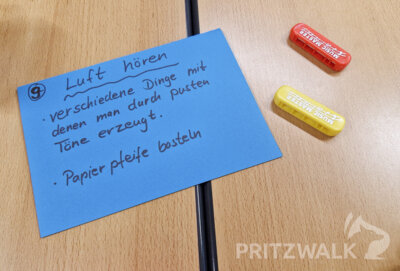 9
Luft hören
· verschiedene Dinge mit
denen man durch pusten
Töne erzeugt.
· Papier pfeife basteln
MUSIC MASTER
MUSIC MASTER
PRITZWALK